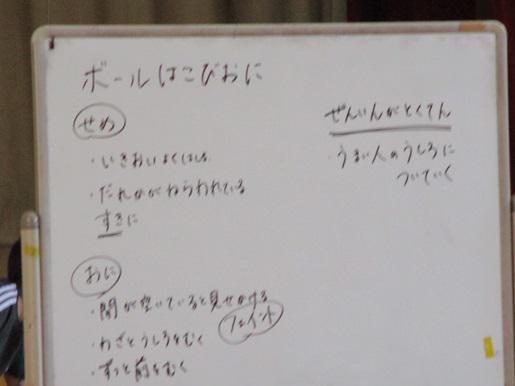 ボールはこびおに
せめ
・いきおいよくはしる
・だれかがねらわれている
すきに
おに
・間が空いていると見せかける
フェイント
・わざとうしろをむく
・ずっと前をむく
ぜんいんがとくてん
・うまい人のうしろに
ついていく